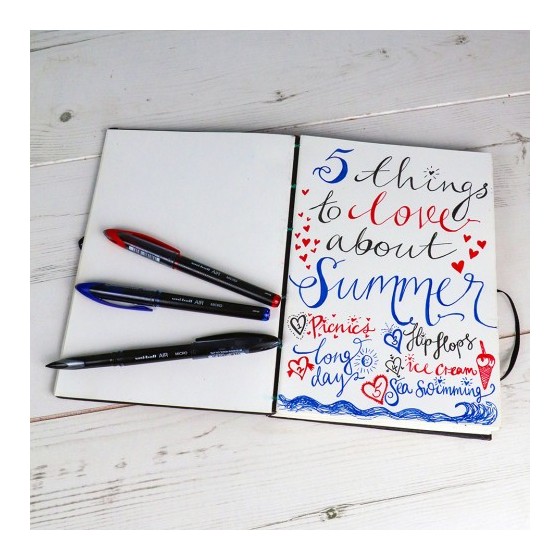 5 things
to love
about
Summer
1 Picnics
2 long
days
Flip flops
ice cream
5 Sea Swimming
uni-ball AIR MICRO
uni-ball AIR MICRO
uni-ball AIR MICRO